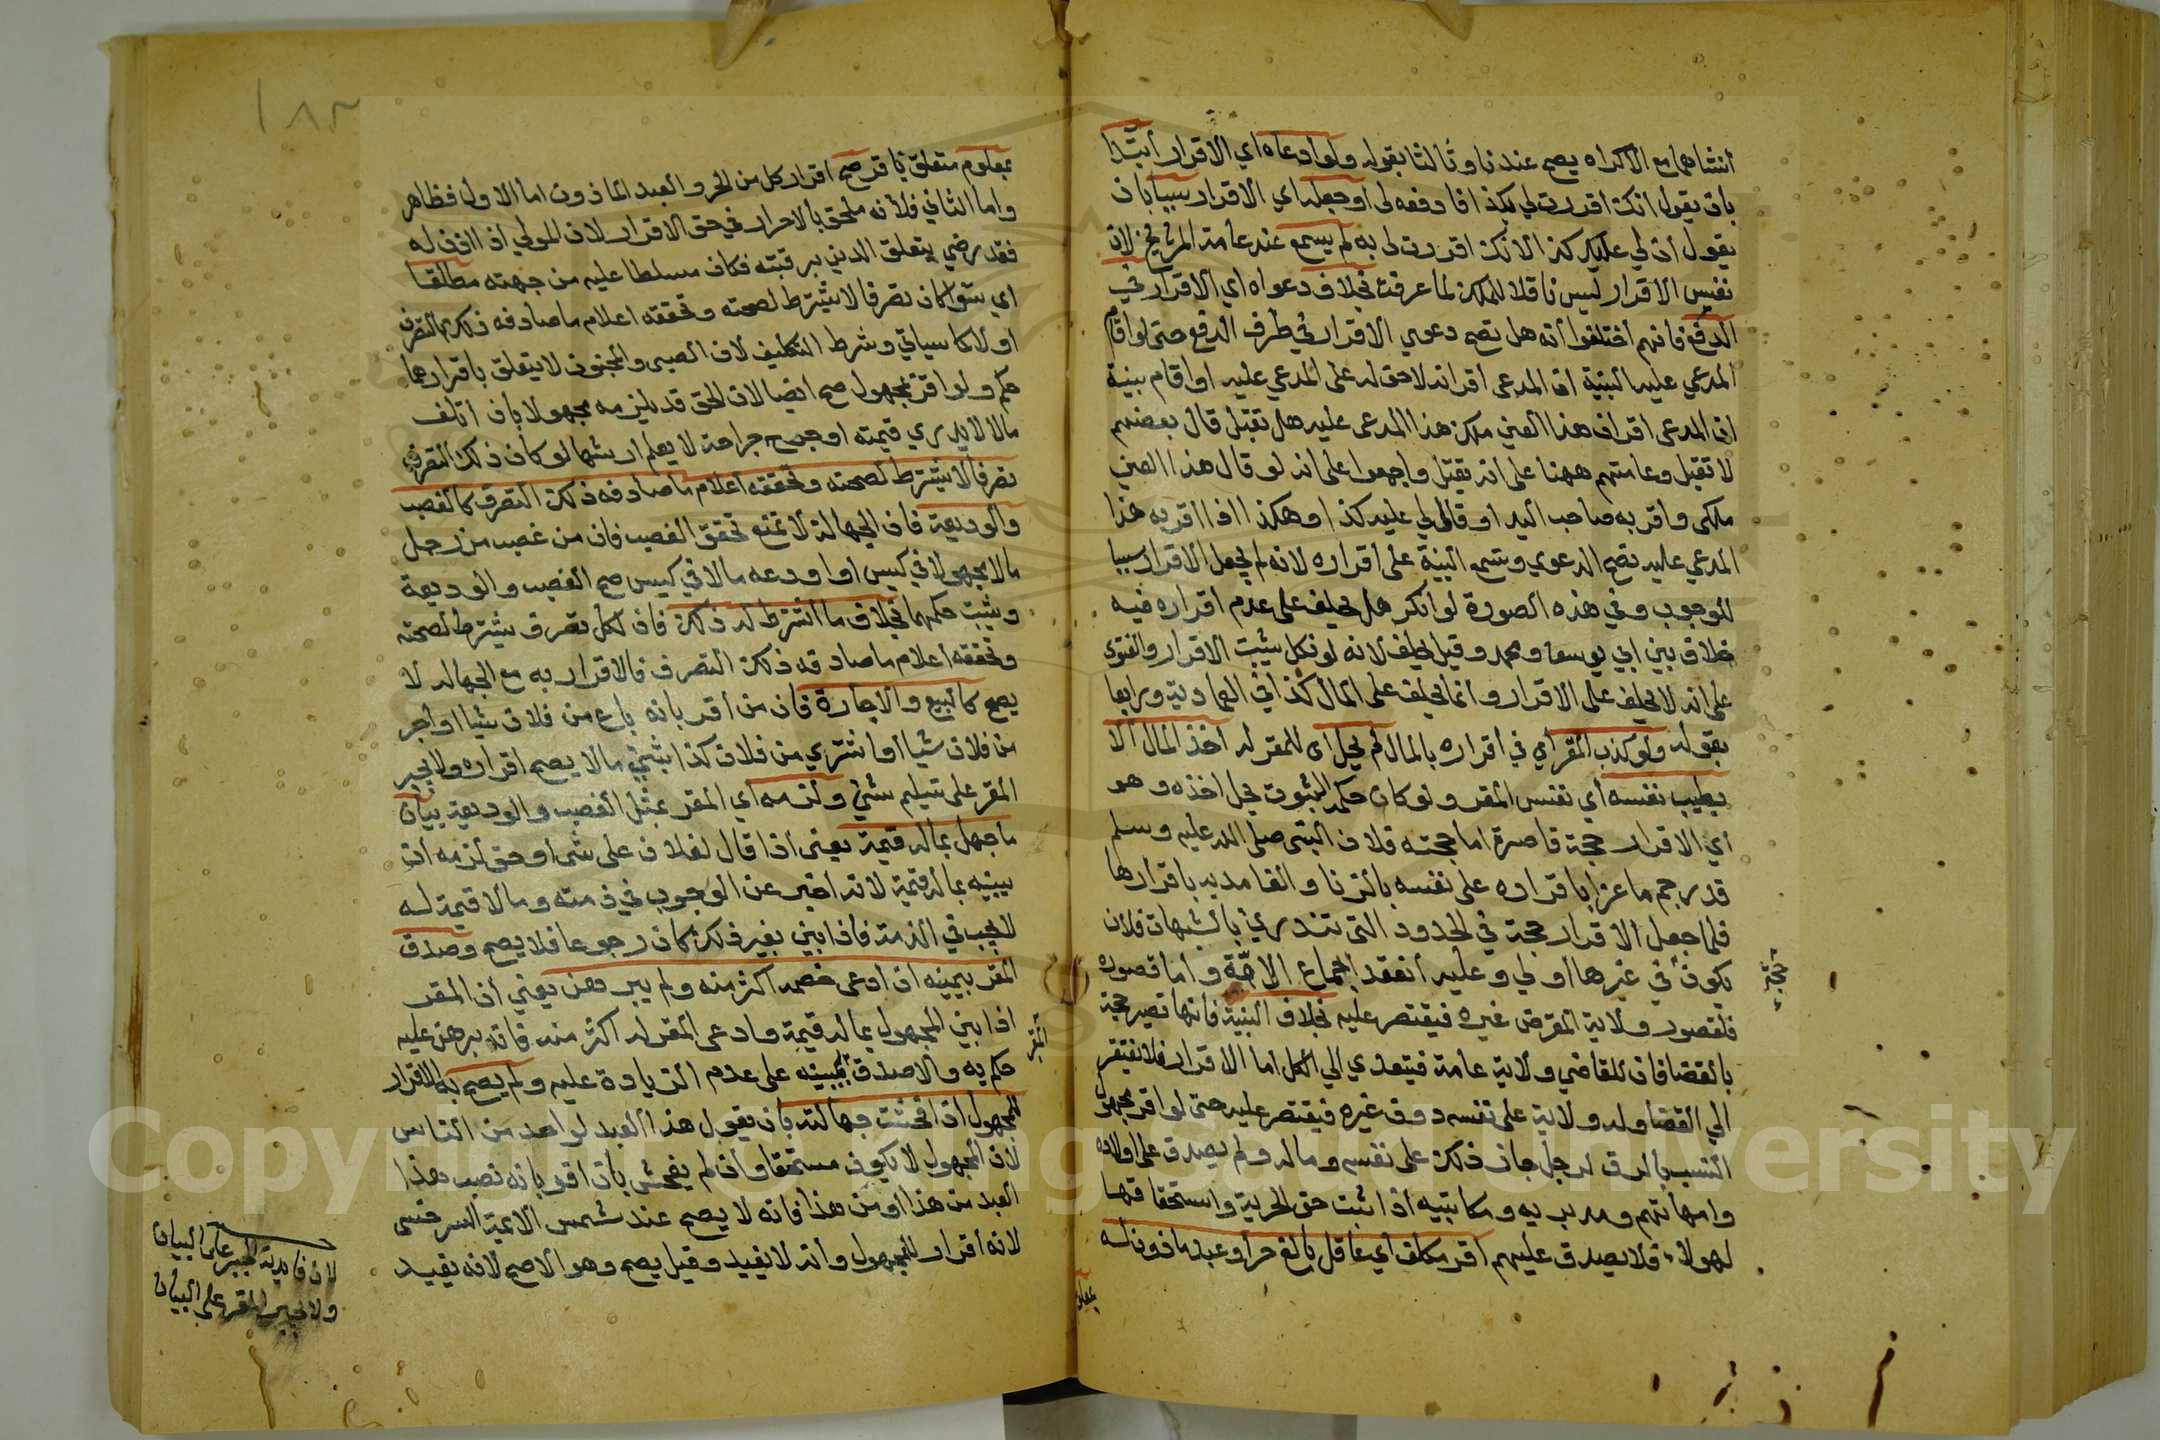 أنشاهما مع الاكراه يصح عندنا وثالثا بقوله ولو ادعاه اي الاقرار أبتدا
بان يقول انك أقررت لي بكذا فادفعه لي أو جعله اي الاقرار سببا بان
يقول أن لي عليك كذا لانك اقررت لي به لم يسمع عند عامة المشايخ لان
نفس الأقرار ليس ناقلا للملك لما عرفت بخلاف دعواه اي الاقرار في
الدفع فانهم أختلفوا أنه هل تصح دعوي الأقرار في طرف الدفع حتى لو اقام
المدعي عليه البينة ان المدعى أقر انه لا حق له على المدعي عليه او اقام بينة
ان المدعى اقر ان هذا العين ملك هذا المدعى عليه هل تقبل قال بعضهم
لا تقبل وعامتهم ههنا على انه يقبل واجمعوا على انه لو قال هذا العين
ملكى واقر به صاحب اليد او قال لي عليه كذا وهكذا اقر به هذا
المدعي عليه تصح الدعوي وتسمع البينة على أقراره لانه لم يجعل الاقرار سببا
للوجوب وفي هذه الصورة لو انكر هل يحلف على عدم اقراره فيه
خلاف بين ابي يوسف ومحمد وقيل يحلف لانه لو نكل يثبت الاقرار والفتوى
على انه لا يحلف على الاقرار وانما يحلف على المال كذا في العمادية ورابعا
بقوله ولو كذب المقر أي في اقراره بالمال لم يحل اى للمقر له أخذ المال الا
بطيب نفسه أي نفس المقر ولو كان حكمه الثبوت يحل اخذه وهو
اي الاقرار حجة قاصرة اما حجته فلان النبى صلى الله عليه وسلم
قد رجم ماعزا باقراره على نفسه بالزنا والغامدية باقرارها
فلما جعل الاقرار حجة في الحدود التي تندري بالشبهات فلان
يكون في غيرها اولي وعليه أنعقد اجماع الامة واما قصوره
حجة
فلقصور ولاية المقر عن غيره فيقتصر عليه بخلاف البينة فانها تصير حجة
بالقضا فان للقاضي ولاية عامة فيتعدي الي الكل اما الاقرار فلا يفتقر
الي القضا وله ولاية على نفسه دون غيره فيقتصر عليه حتى لو اقر مجهول
النسب بالرق لرجل جاز ذلك على نفسه وماله ولم يصدق على اولاده
وامهاتهم ومدبريه ومكاتبيه اذا ثبت حق الحرية واستحقاقها
لهولاء فلا يصدق عليهم أقر مكلف أي عاقل بالغ حر أو عبد ماذون له
بمعلوم
١٨٣
بمعلوم متعلق باقر صح اقرار كل من الحر والعبد الماذون اما الاول فظاهر
واما الثاني فلأنه ملحق بالاحرار في حق الاقرار لان المولي اذا اذن له
فقد رضي بتعلق الدين برقبته فكان مسلطا عليه من جهته مطلقا
اي سوا كان تصرفا لا يشترط لصحته وتحققه اعلام ما صادفه ذلك التصرف
اولا كما سياتي وشرط التكليف لان الصبى والمجنون لا يتعلق باقرارهما
حكم ولو اقر بمجهول صح ايضا لان الحق قد يلزمه مجهولا بان أتلف
مالا لا يدري قيمته او جرح جراحة لا يعلم ارشها لو كان ذلك التصرف
تصرفا لا يشترط لصحته وتحققه أعلام ما صادفه ذلك التصرف كالغصب
والوديعة فان الجهالة لا تمنع تحقق الغصب فان من غصب من رجل
مالا مجهولا في كيس او اودعه مالا في كيس صح الغصب والوديعة
ويثبت حكمهما بخلاف ما أشترط له ذلك فان لكل تصرف يشترط لصحته
وتحققه اعلام ما صادفه ذلك التصرف فالاقرار به مع الجهالة لا
يصح كالبيع والاجارة فان من أقر بانه باع من فلان شيا او أجر
من فلان شيا أو اشتري من فلان كذا بشي مالا يصح اقراره ولا يجبر
المقر على تسليم شئ ولزمه اي المقر بمثل الغصب والوديعة بيان
ما جهل بماله قيمة يعنى أذا قال لفلان على شى او حق لزمه ان
يبينه بماله قيمة لانه اخبر عن الوجوب في ذمته وما لا قيمة له
لا يجب في الذمة فاذا بين بغير ذلك كان رجوعا فلا يصح وصدق
المقر بيمينه ان ادعى خصمه اكثر منه ولم يبرهن يعني ان المقر
اذا بين المجهول بماله قيمة وادعى المقر له اكثر منه فانه برهن عليه
المقر
حكم به والا صدق بيمينه على عدم الزيادة عليه ولم يصح به الاقرار
للمجهول اذا فحشت جهالته بان يقول هذا العبد لواحد من الناس
لان المجهول لا يكون مستحقا وأن لم يفحش بان اقر بانه غصب هذا
العبد من هذا او من هذا فانه لا يصح عند شمس الائمة السرخسى
لانه أقرار للمجهول وانه لا يفيد وقيل يصح وهو الاصح لانه يفيد
لان فايدته الجبر على البيان
ولا يجبر المقر على البيان
Copyright © King Saud University